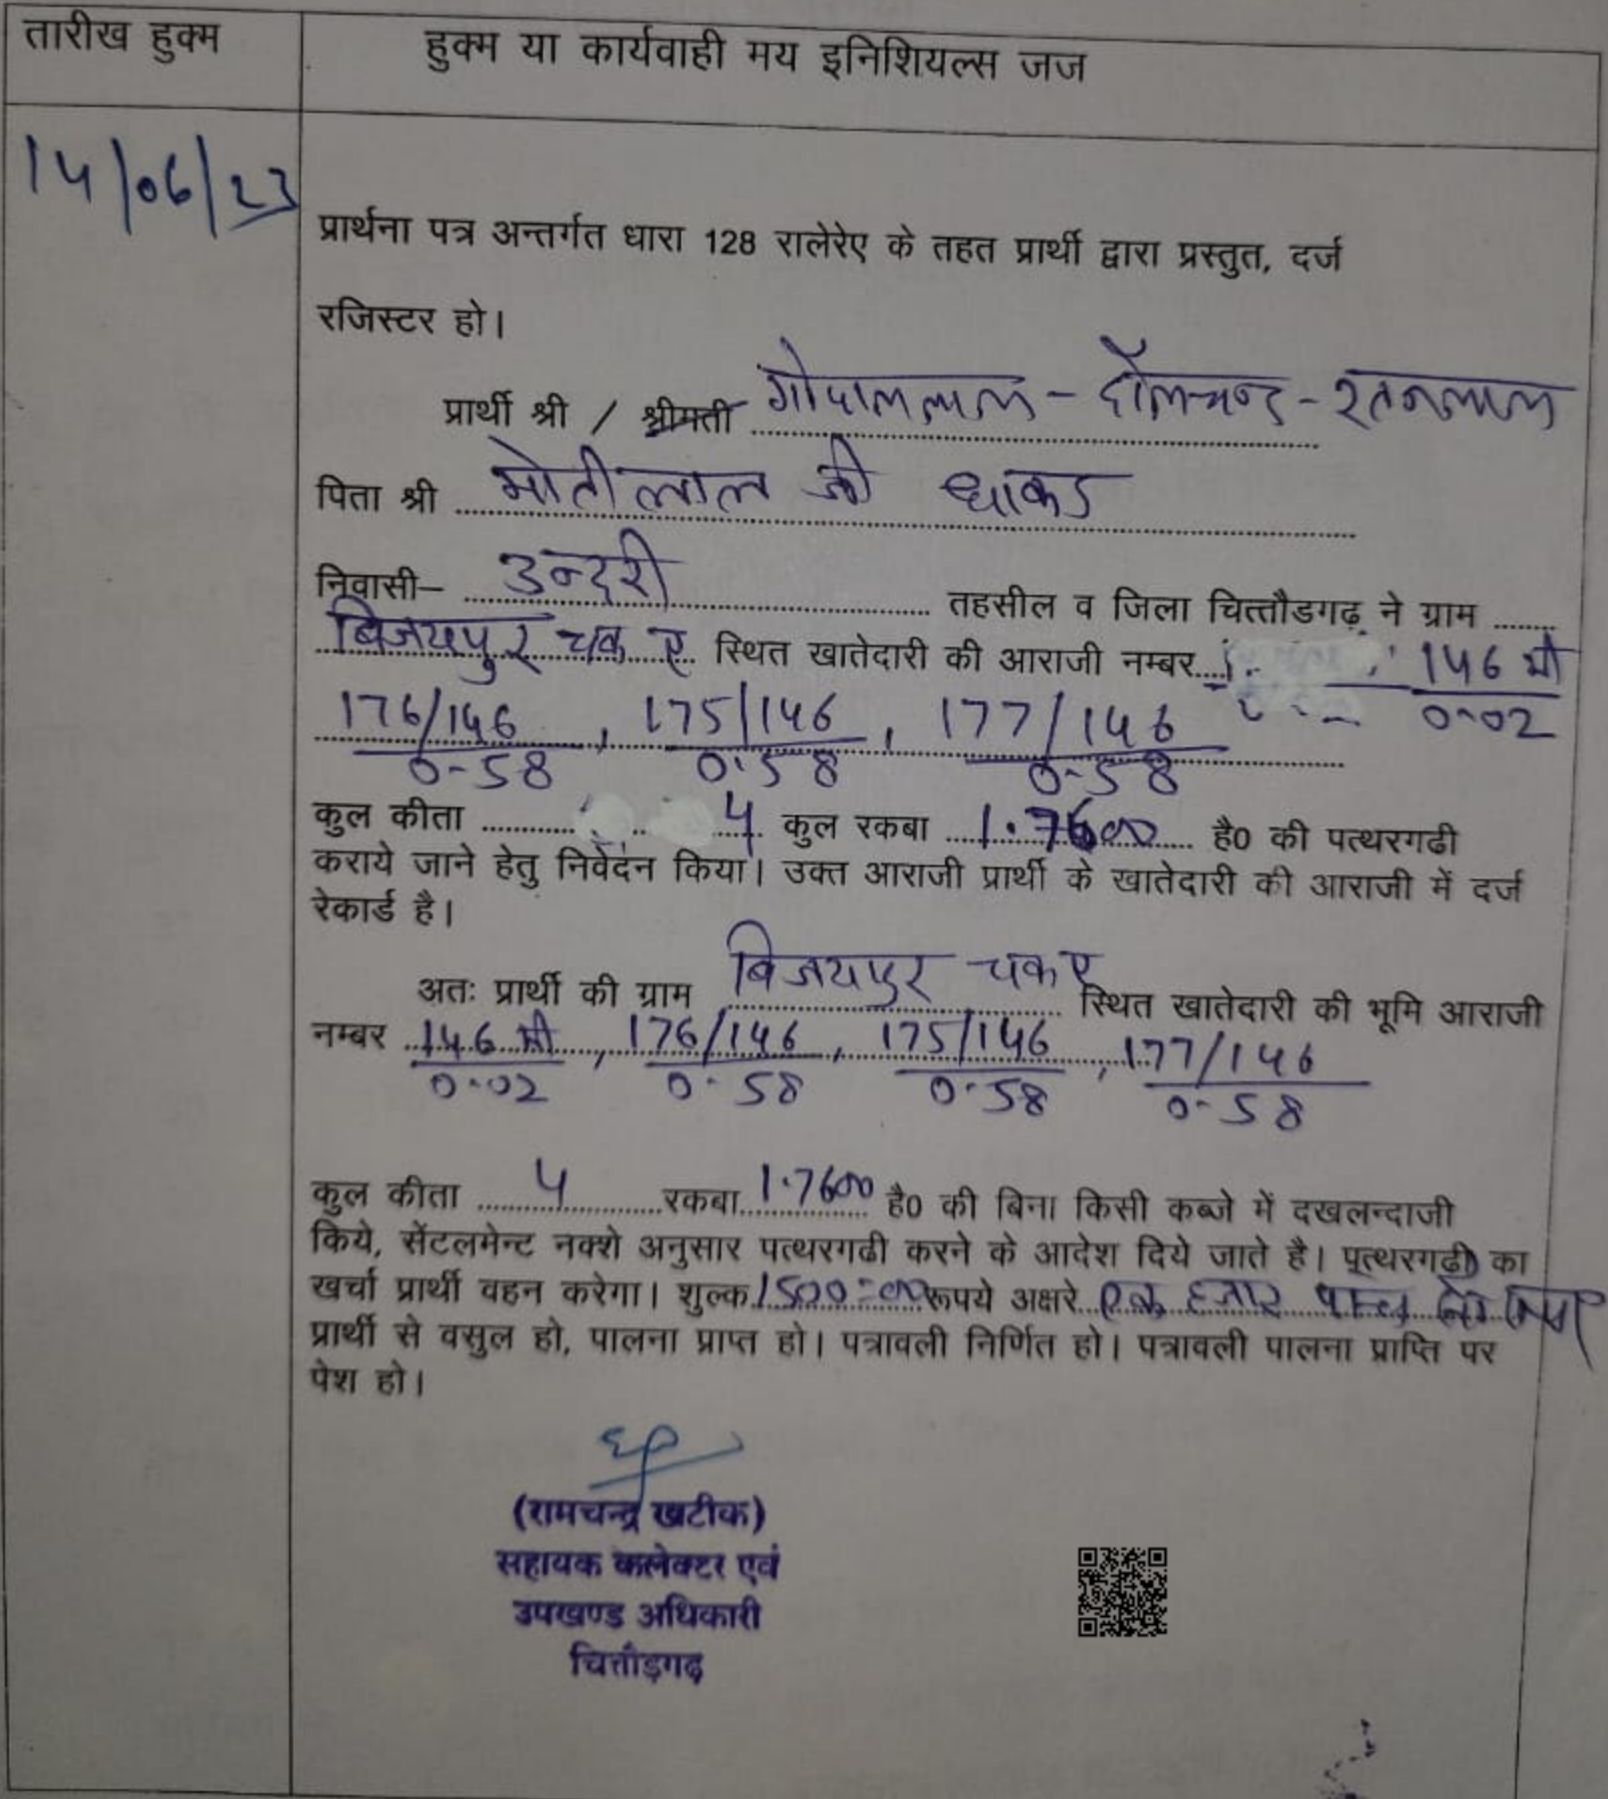 तारीख हुक्म
हुक्म या कार्यवाही मय इनिशियल्स जज
14/06/23
प्रार्थना पत्र अन्तर्गत धारा 128 रालेरेए के तहत प्रार्थी द्वारा प्रस्तुत, दर्ज
रजिस्टर हो।
प्रार्थी श्री / श्रीमती गोपाललाल - दौलचन्द - रतनलाल
पिता श्री मोतीलाल जी धाकड
निवासी– उन्दरी तहसील व जिला चित्तौडगढ़ ने ग्राम
बिजयपुर चक ए स्थित खातेदारी की आराजी नम्बर 146 मी
0-02
176/146, 175/146, 177/146
0-58 0.58 0-58
कुल कीता 4 कुल रकबा 1.7600 है0 की पत्थरगढी
कराये जाने हेतु निवेदन किया। उक्त आराजी प्रार्थी के खातेदारी की आराजी में दर्ज
रेकार्ड है।
अतः प्रार्थी की ग्राम बिजयपुर चक ए स्थित खातेदारी की भूमि आराजी
नम्बर 146 मी, 176/146, 175/146, 177/146
0-02 0-58 0-58 0-58
कुल कीता 4 रकबा 1.7600 है0 की बिना किसी कब्जे में दखलन्दाजी
किये, सेंटलमेन्ट नक्शे अनुसार पत्थरगढी करने के आदेश दिये जाते है। पत्थरगढ़ी का
खर्चा प्रार्थी वहन करेगा। शुल्क 1500=00 रूपये अक्षरे एक हजार पान्च
प्रार्थी से वसुल हो, पालना प्राप्त हो। पत्रावली निर्णित हो। पत्रावली पालना प्राप्ति पर
पेश हो।
(रामचन्द्र खटीक)
सहायक कलेक्टर एवं
उपखण्ड अधिकारी
चित्तौड़गढ़